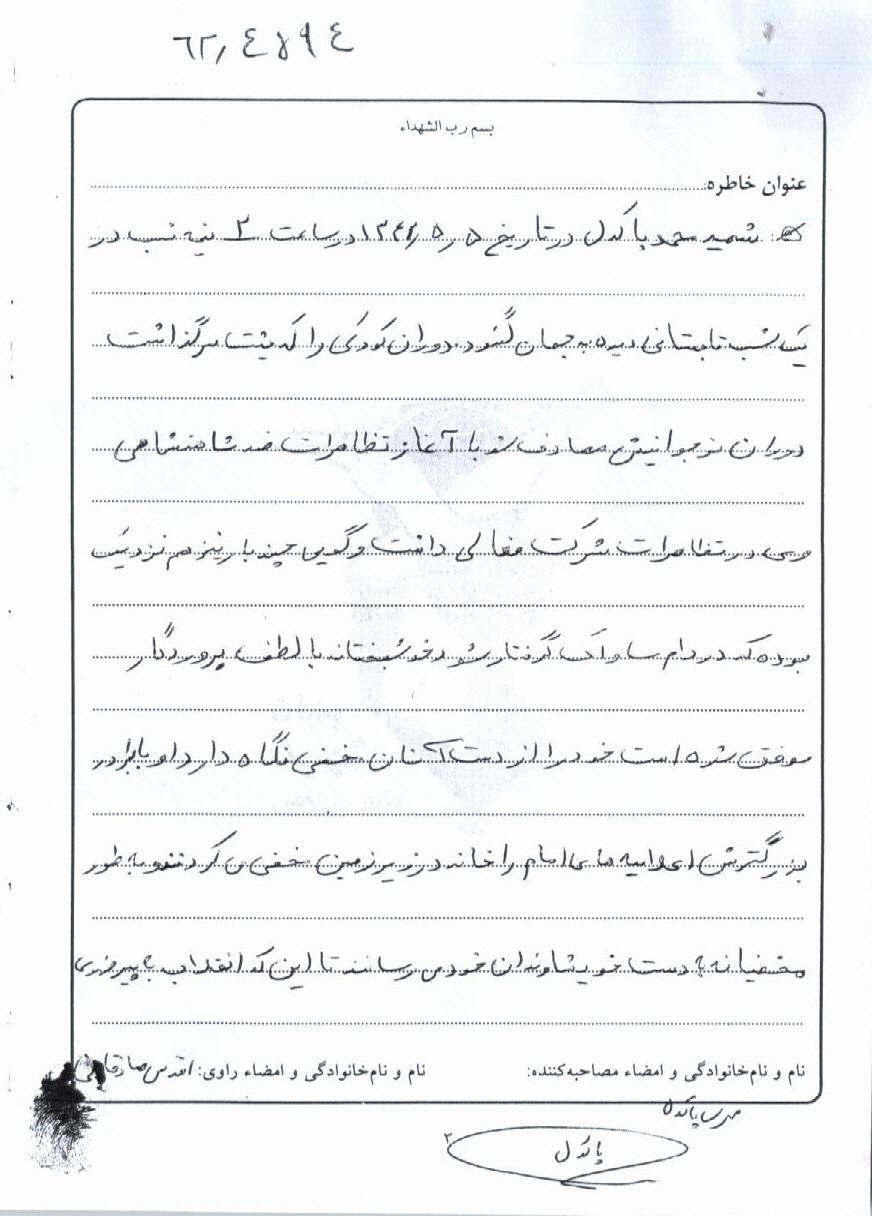 ٦٢٫٤٥٩٤
بسم رب الشهداء
عنوان خاطره:
شهید محمد پاکدل در تاریخ ۵ ر ۵ ر ۱۳۴۲ در ساعت ۳ نیمه شب در
یک شب تابستانی دیده به جهان گشود. دوران کودکی را که پشت سر گذاشت
دوران نوجوانیش مصادف شد با آغاز تظاهرات ضد شاهنشاهی
وی در تظاهرات شرکت فعالی داشت و گویی چند بار نیز هم نزدیک
بوده که در دام ساواک گرفتار شود خوشبختانه با لطف پروردگار
موفق شده است خود را از دست آنان مخفی نگاه دارد او با برادر
بزرگترش اعلامیه های امام را خانه در زیر زمین مخفی می کردند و به طور
مخفیانه به دست خویشاوندان خود می رساندند تا این که انقلاب به پیروزی
نام و نام خانوادگی و امضاء مصاحبه کننده:
نام و نام خانوادگی و امضاء راوی: اقدس صادق
پاکدل
پاکدل
۳